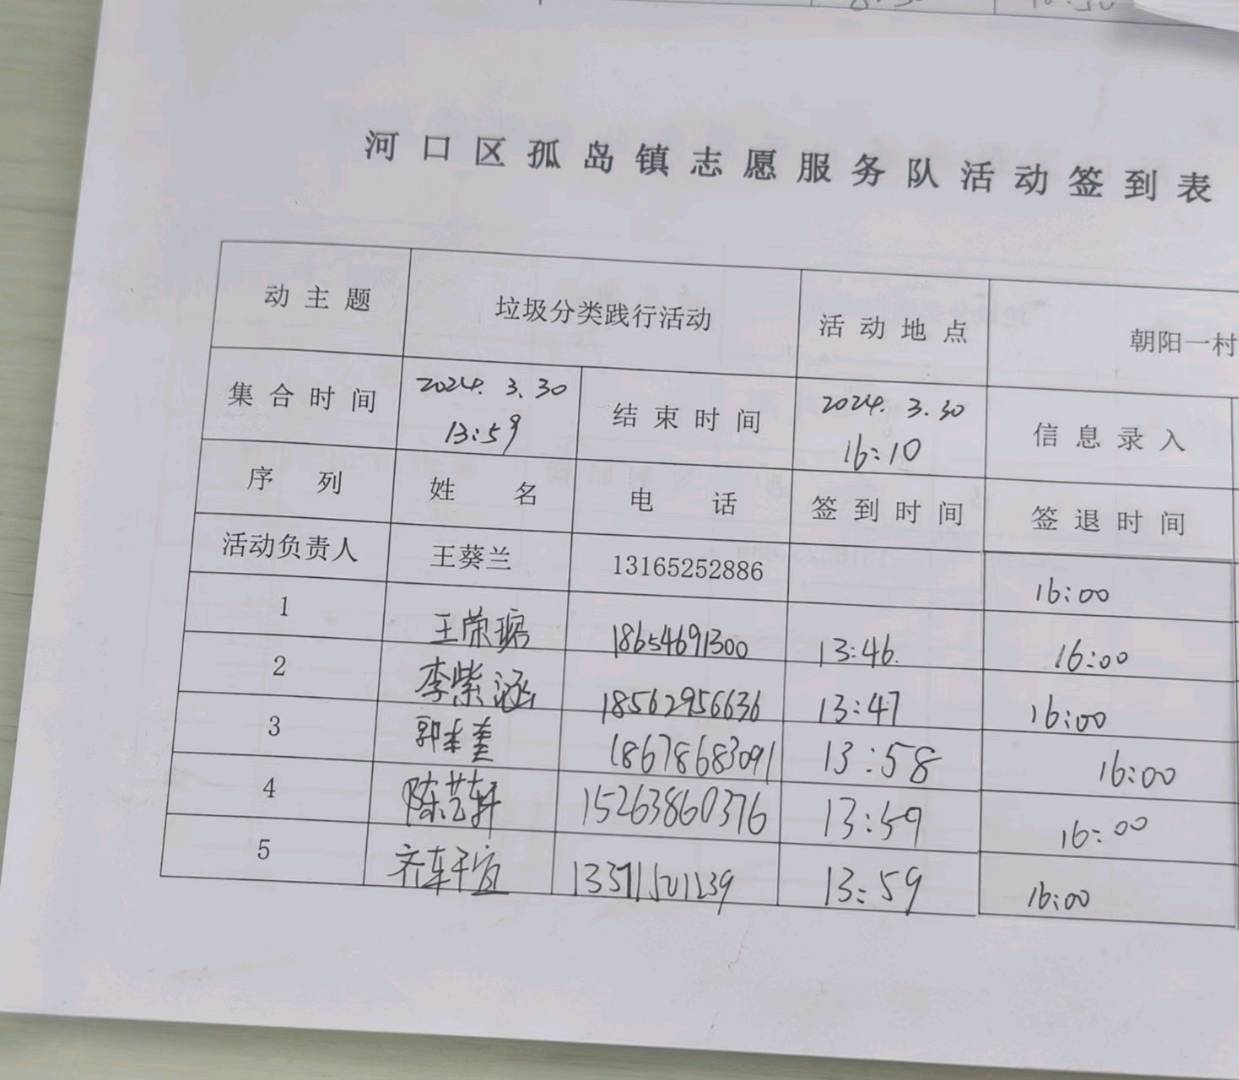 河口区孤岛镇志愿服务队活动签到表
动主题 垃圾分类践行活动 活动地点 朝阳一村
集合时间 2024.3.30 13:59 结束时间 2024.3.30 16:10 信息录入
序列 姓名 电话 签到时间 签退时间
活动负责人 王葵兰 13165252886 16:00
1 王荣琚 18654691300 13:46 16:00
2 李紫涵 18562956636 13:47 16:00
3 郭本奎 18678683091 13:58 16:00
4 陈芸轩 15263860376 13:59 16:00
5 13:59 16:00